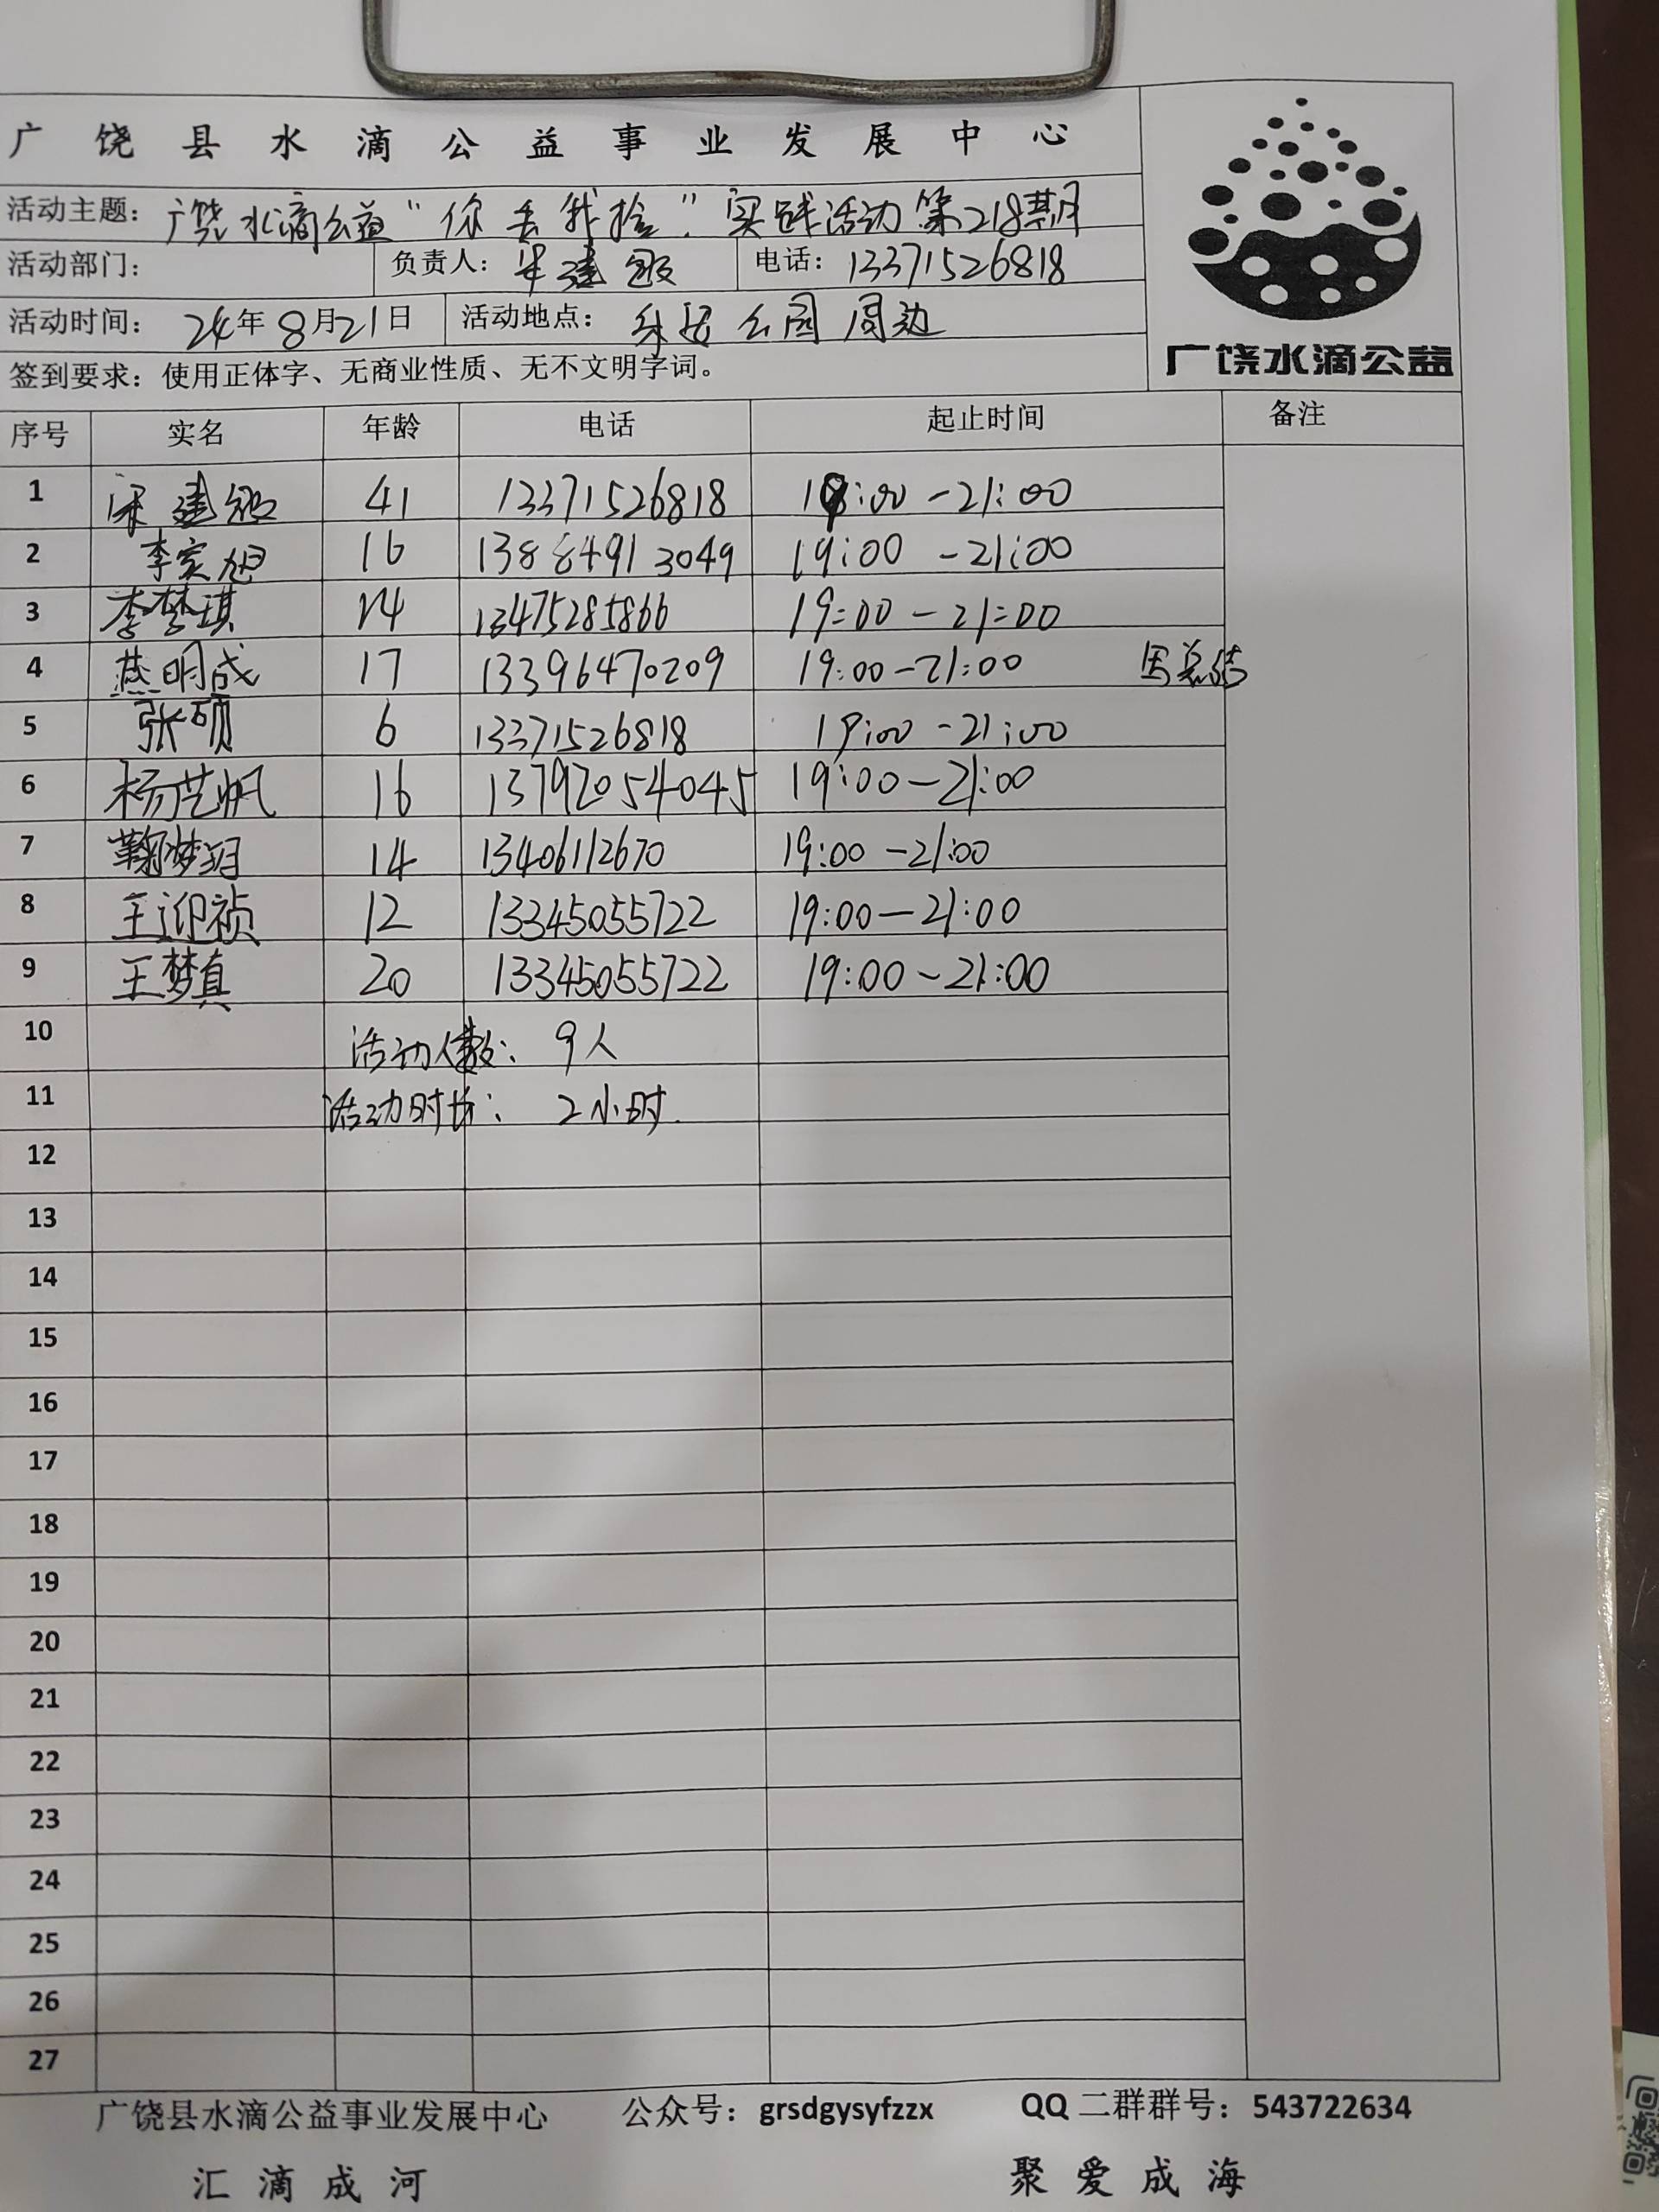 广饶县水滴公益事业发展中心
活动主题：广饶水滴公益"你丢我捡"实践活动第218期
活动部门： 负责人：宋建 电话：13371526818
活动时间：24年8月21日 活动地点：乐安公园周边
签到要求：使用正体字、无商业性质、无不文明字词。
广饶水滴公益
序号 实名 年龄 电话 起止时间 备注
1 宋建 41 13371526818 19:00-21:00
2 李奕旭 16 13884913049 19:00-21:00
3 李梦琪 14 13475285866 19:00-21:00
4 燕明成 17 13396470209 19:00-21:00 写总结
5 张硕 6 13371526818 19:00-21:00
6 杨艺帆 16 13792054045 19:00-21:00
7 鞠梦玥 14 13406112670 19:00-21:00
8 王迎祯 12 13345055722 19:00-21:00
9 王梦真 20 13345055722 19:00-21:00
10 活动人数：9人
11 活动时长：2小时.
12
13
14
15
16
17
18
19
20
21
22
23
24
25
26
27
广饶县水滴公益事业发展中心 公众号：grsdgysyfzzx QQ二群群号：543722634
汇滴成河 聚爱成海